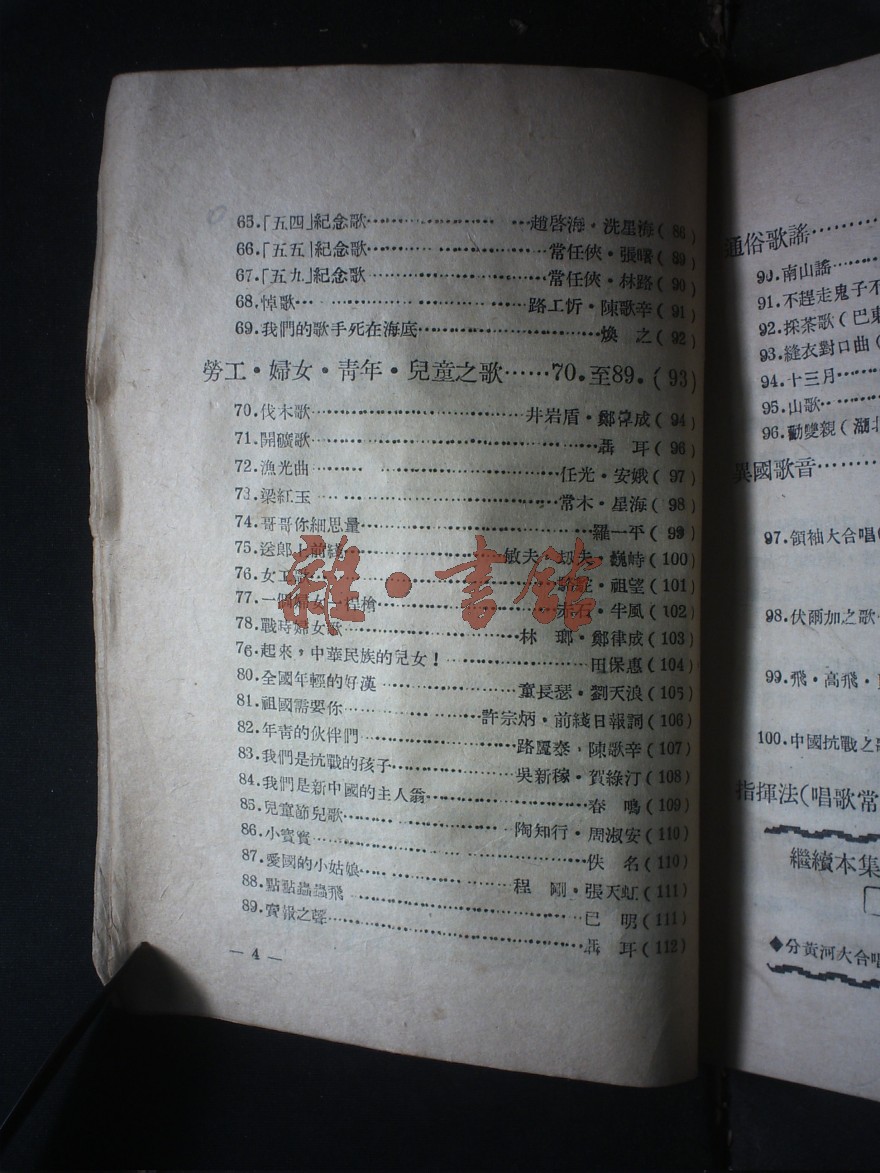 65.「五四」紀念歌………………趙啓海·洗星海( 86 )
66.「五五」紀念歌………………常任俠·張曙( 89 )
67.「五九」紀念歌………………常任俠·林路( 90 )
68.悼歌………………路工忻·陳歌辛( 91 )
69.我們的歌手死在海底………………煥 之( 92 )
勞工·婦女·靑年·兒童之歌……70.至89.(93)
70.伐木歌………………井岩盾·鄭律成( 94 )
71.開礦歌………………聶 耳( 96 )
72.漁光曲………………任光·安娥( 97 )
73.梁紅玉………………常木·星海( 98 )
74.哥哥你細思量………………羅一平( 99 )
75.送郎上前綫………………敏夫·刼夫·巍峙(100)
76.女工歌………………·祖望(101)
77.一個婦女一桿槍………………赤石·牛風(102)
78.戰時婦女歌………………林 瑯·鄭律成(103)
76.起來,中華民族的兒女!………………田保惠(104)
80.全國年輕的好漢………………童長瑟·劉天浪(105)
81.祖國需要你………………許宗炳·前綫日報詞(106)
82.年靑的伙伴們………………路·陳歌辛(107)
83.我們是抗戰的孩子………………吳新稼·賀綠汀(108)
84.我們是新中國的主人翁………………春 鳴(109)
85.兒童節兒歌………………陶知行·周淑安(110)
86.小寶寶………………佚 名(110)
87.愛國的小姑娘………………程 剛·張天虹(111)
88.點點蟲蟲飛………………巳 明(111)
89.賣報之聲………………聶 耳(112)
— 4 —
通俗歌謠………
90.南山謠………
91.不趕走鬼子不
92.採茶歌(巴東
93.縫衣對口曲(
94.十三月………
95.山歌………
96.勸雙親(湖北
異國歌音………
97.領袖大合唱(
98.伏爾加之歌
99.飛·高飛·
100.中國抗戰之歌
指揮法(唱歌常
繼續本集
◆分黃河大合唱
雜·書館